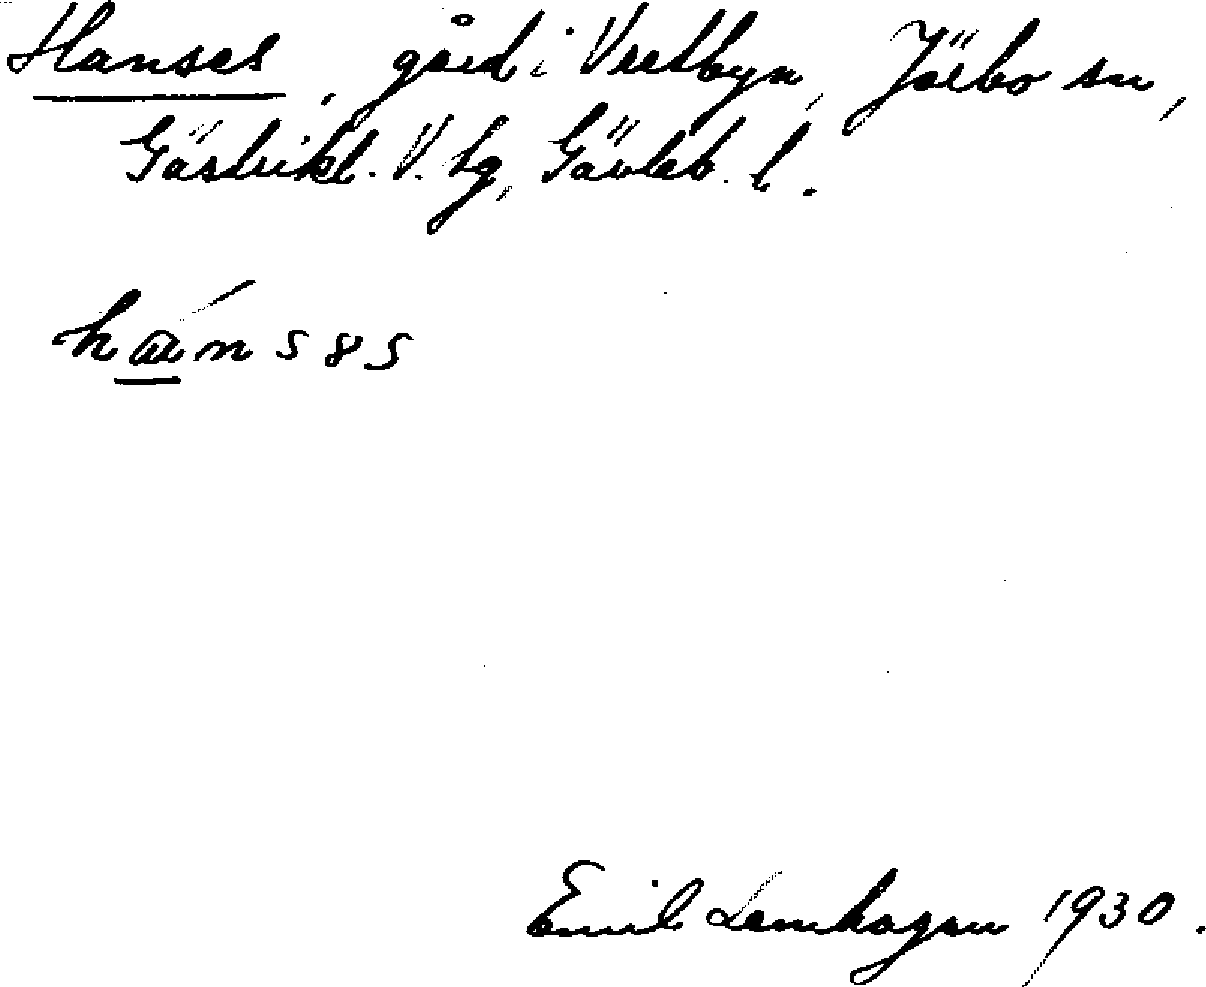 Hanses, gård i Vretbyn, Järbo sn,
Gästrikl. V. hg, Gävleb. l.
hánsəs
Emil Lemhagen 1930.